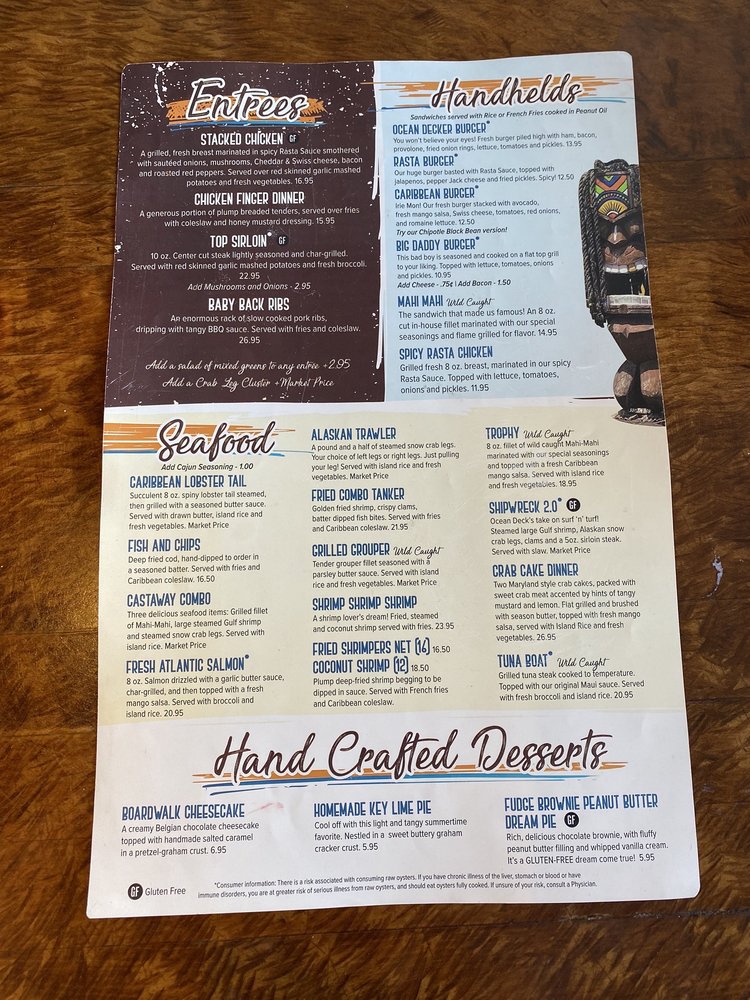 Entrees
STACKED CHICKEN GF
A grilled, fresh breast marinated in spicy Rasta Sauce smothered
with sautéed onions, mushrooms, Cheddar & Swiss cheese, bacon
and roasted red peppers. Served over red skinned garlic mashed
potatoes and fresh vegetables. 16.95
CHICKEN FINGER DINNER
A generous portion of plump breaded tenders, served over fries
with coleslaw and honey mustard dressing. 15.95
TOP SIRLOIN* GF
10 oz. Center cut steak lightly seasoned and char-grilled.
Served with red skinned garlic mashed potatoes and fresh broccoli.
22.95
Add Mushrooms and Onions - 2.95
BABY BACK RIBS
An enormous rack of slow cooked pork ribs,
dripping with tangy BBQ sauce. Served with fries and coleslaw.
26.95
Add a salad of mixed greens to any entree +2.95
Add a Crab Leg Cluster +Market Price
Handhelds
Sandwiches served with Rice or French Fries cooked in Peanut Oil
OCEAN DECKER BURGER*
You won't believe your eyes! Fresh burger piled high with ham, bacon,
provolone, fried onion rings, lettuce, tomatoes and pickles. 13.95
RASTA BURGER*
Our huge burger basted with Rasta Sauce, topped with
jalapenos, pepper Jack cheese and fried pickles. Spicy! 12.50
CARIBBEAN BURGER*
Irie Mon! Our fresh burger stacked with avocado,
fresh mango salsa, Swiss cheese, tomatoes, red onions,
and romaine lettuce. 12.50
Try our Chipotle Black Bean version!
BIG DADDY BURGER*
This bad boy is seasoned and cooked on a flat top grill
to your liking. Topped with lettuce, tomatoes, onions
and pickles. 10.95
Add Cheese - .75¢ | Add Bacon - 1.50
MAHI MAHI Wild Caught
The sandwich that made us famous! An 8 oz.
cut in-house fillet marinated with our special
seasonings and flame grilled for flavor. 14.95
SPICY RASTA CHICKEN
Grilled fresh 8 oz. breast, marinated in our spicy
Rasta Sauce. Topped with lettuce, tomatoes,
onions and pickles. 11.95
Seafood
Add Cajun Seasoning - 1.00
CARIBBEAN LOBSTER TAIL
Succulent 8 oz. spiny lobster tail steamed,
then grilled with a seasoned butter sauce.
Served with drawn butter, island rice and
fresh vegetables. Market Price
FISH AND CHIPS
Deep fried cod, hand-dipped to order in
a seasoned batter. Served with fries and
Caribbean coleslaw. 16.50
CASTAWAY COMBO
Three delicious seafood items: Grilled fillet
of Mahi-Mahi, large steamed Gulf shrimp
and steamed snow crab legs. Served with
island rice. Market Price
FRESH ATLANTIC SALMON*
8 oz. Salmon drizzled with a garlic butter sauce,
char-grilled, and then topped with a fresh
mango salsa. Served with broccoli and
island rice. 20.95
ALASKAN TRAWLER
A pound and a half of steamed snow crab legs.
Your choice of left legs or right legs. Just pulling
your leg! Served with island rice and fresh
vegetables. Market Price
FRIED COMBO TANKER
Golden fried shrimp, crispy clams,
batter dipped fish bites. Served with fries
and Caribbean coleslaw. 21.95
GRILLED GROUPER Wild Caught
Tender grouper fillet seasoned with a
parsley butter sauce. Served with island
rice and fresh vegetables. Market Price
SHRIMP SHRIMP SHRIMP
A shrimp lover's dream! Fried, steamed
and coconut shrimp served with fries. 23.95
FRIED SHRIMPERS NET (14) 16.50
COCONUT SHRIMP (12) 18.50
Plump deep-fried shrimp begging to be
dipped in sauce. Served with French fries
and Caribbean coleslaw.
TROPHY Wild Caught
8 oz. fillet of wild caught Mahi-Mahi
marinated with our special seasonings
and topped with a fresh Caribbean
mango salsa. Served with island rice
and fresh vegetables. 18.95
SHIPWRECK 2.0* GF
Ocean Deck's take on surf 'n' turf!
Steamed large Gulf shrimp, Alaskan snow
crab legs, clams and a 5oz. sirloin steak.
Served with slaw. Market Price
CRAB CAKE DINNER
Two Maryland style crab cakes, packed with
sweet crab meat accented by hints of tangy
mustard and lemon. Flat grilled and brushed
with season butter, topped with fresh mango
salsa, served with Island Rice and fresh
vegetables. 26.95
TUNA BOAT* Wild Caught
Grilled tuna steak cooked to temperature.
Topped with our original Maui sauce. Served
with fresh broccoli and island rice. 20.95
Hand Crafted Desserts
BOARDWALK CHEESECAKE
A creamy Belgian chocolate cheesecake
topped with handmade salted caramel
in a pretzel-graham crust. 6.95
HOMEMADE KEY LIME PIE
Cool off with this light and tangy summertime
favorite. Nestled in a sweet buttery graham
cracker crust. 5.95
FUDGE BROWNIE PEANUT BUTTER
DREAM PIE GF
Rich, delicious chocolate brownie, with fluffy
peanut butter filling and whipped vanilla cream.
It's a GLUTEN-FREE dream come true! 5.95
GF Gluten Free
*Consumer information: There is a risk associated with consuming raw oysters. If you have chronic illness of the liver, stomach or blood or have
immune disorders, you are at greater risk of serious illness from raw oysters, and should eat oysters fully cooked. If unsure of your risk, consult a Physician.